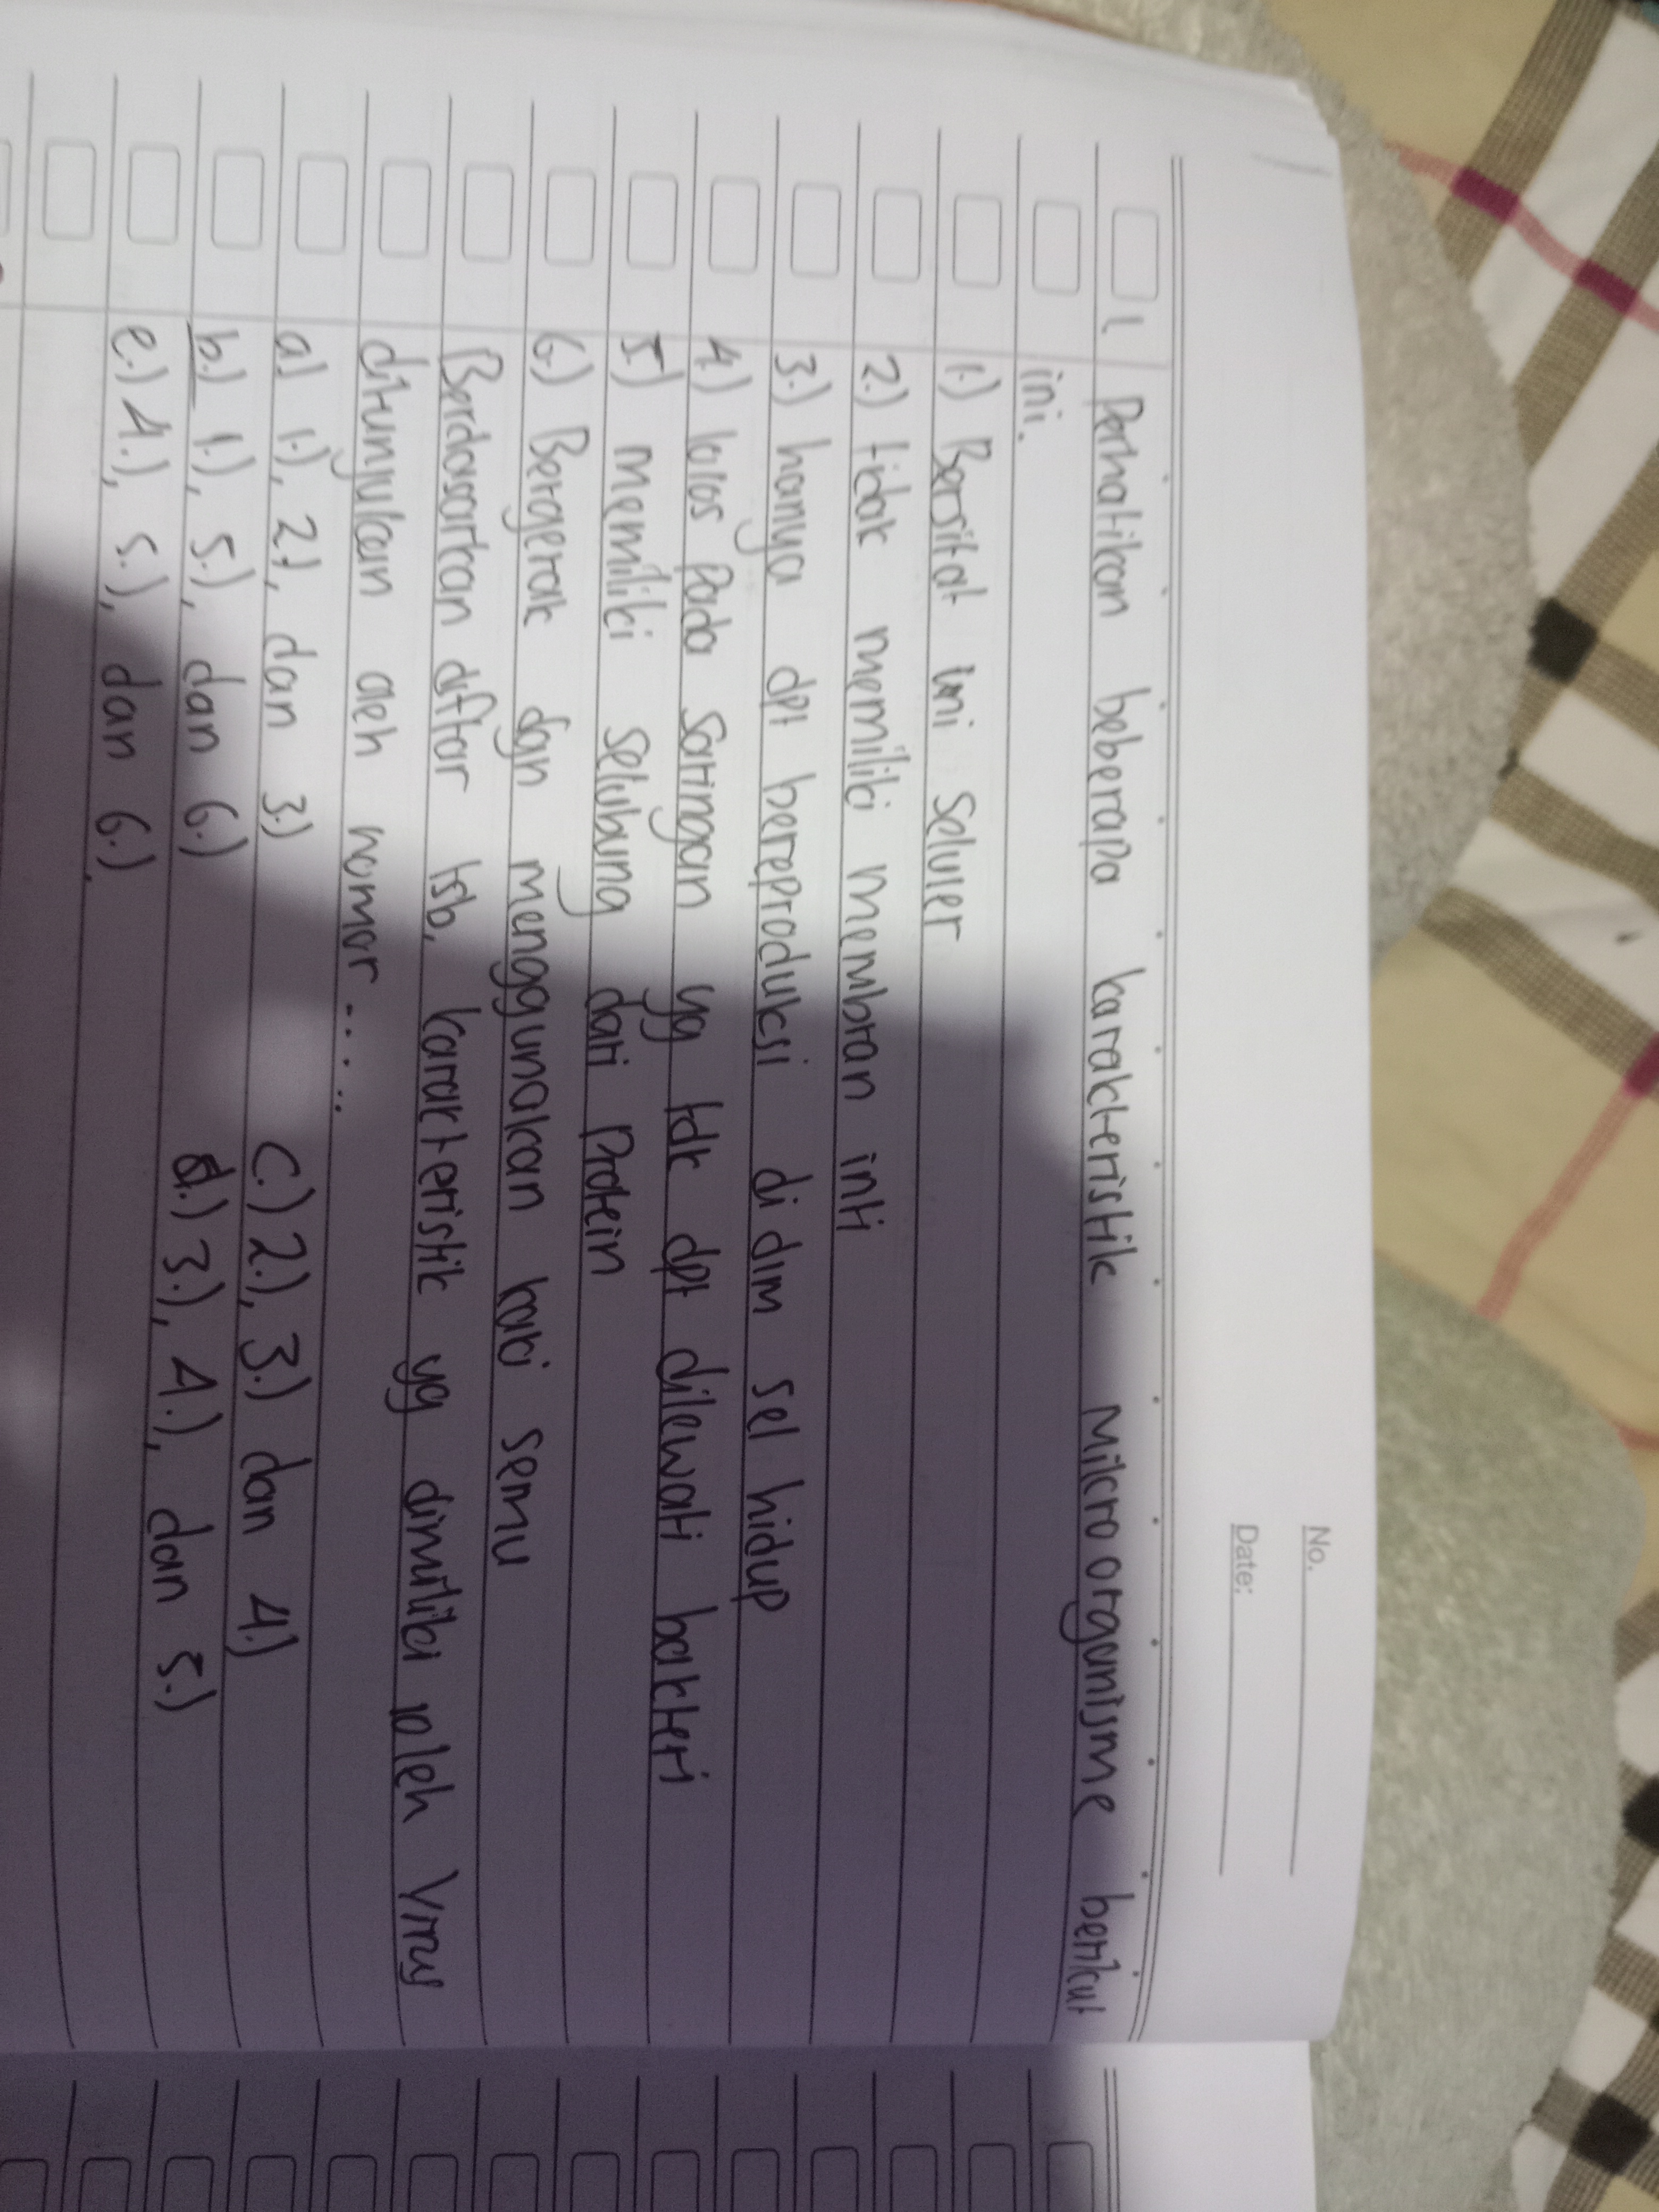 No.
Date:
1. Perhatikan beberapa karakteristik Mikroorganisme berikut
ini.
1.) Bersifat uni seluler
2.) tidak memiliki membran inti
3.) hanya dpt bereproduksi di dlm sel hidup
4.) lolos pada saringan yg tdk dpt dilewati bakteri
5.) memiliki selubung dari Protein
6.) Bergerak dgn menggunakan kaki semu
Berdasarkan diftar tsb, karakteristik yg dimiliki oleh Virus
ditunjukan aeh nomor.....
a.) 1.), 2.), dan 3.) c.) 2.), 3.) dan 4.)
b.) 1.), 5.), dan 6.) d.) 3.), 4.), dan 5.)
e.) 4.), 5.), dan 6.).